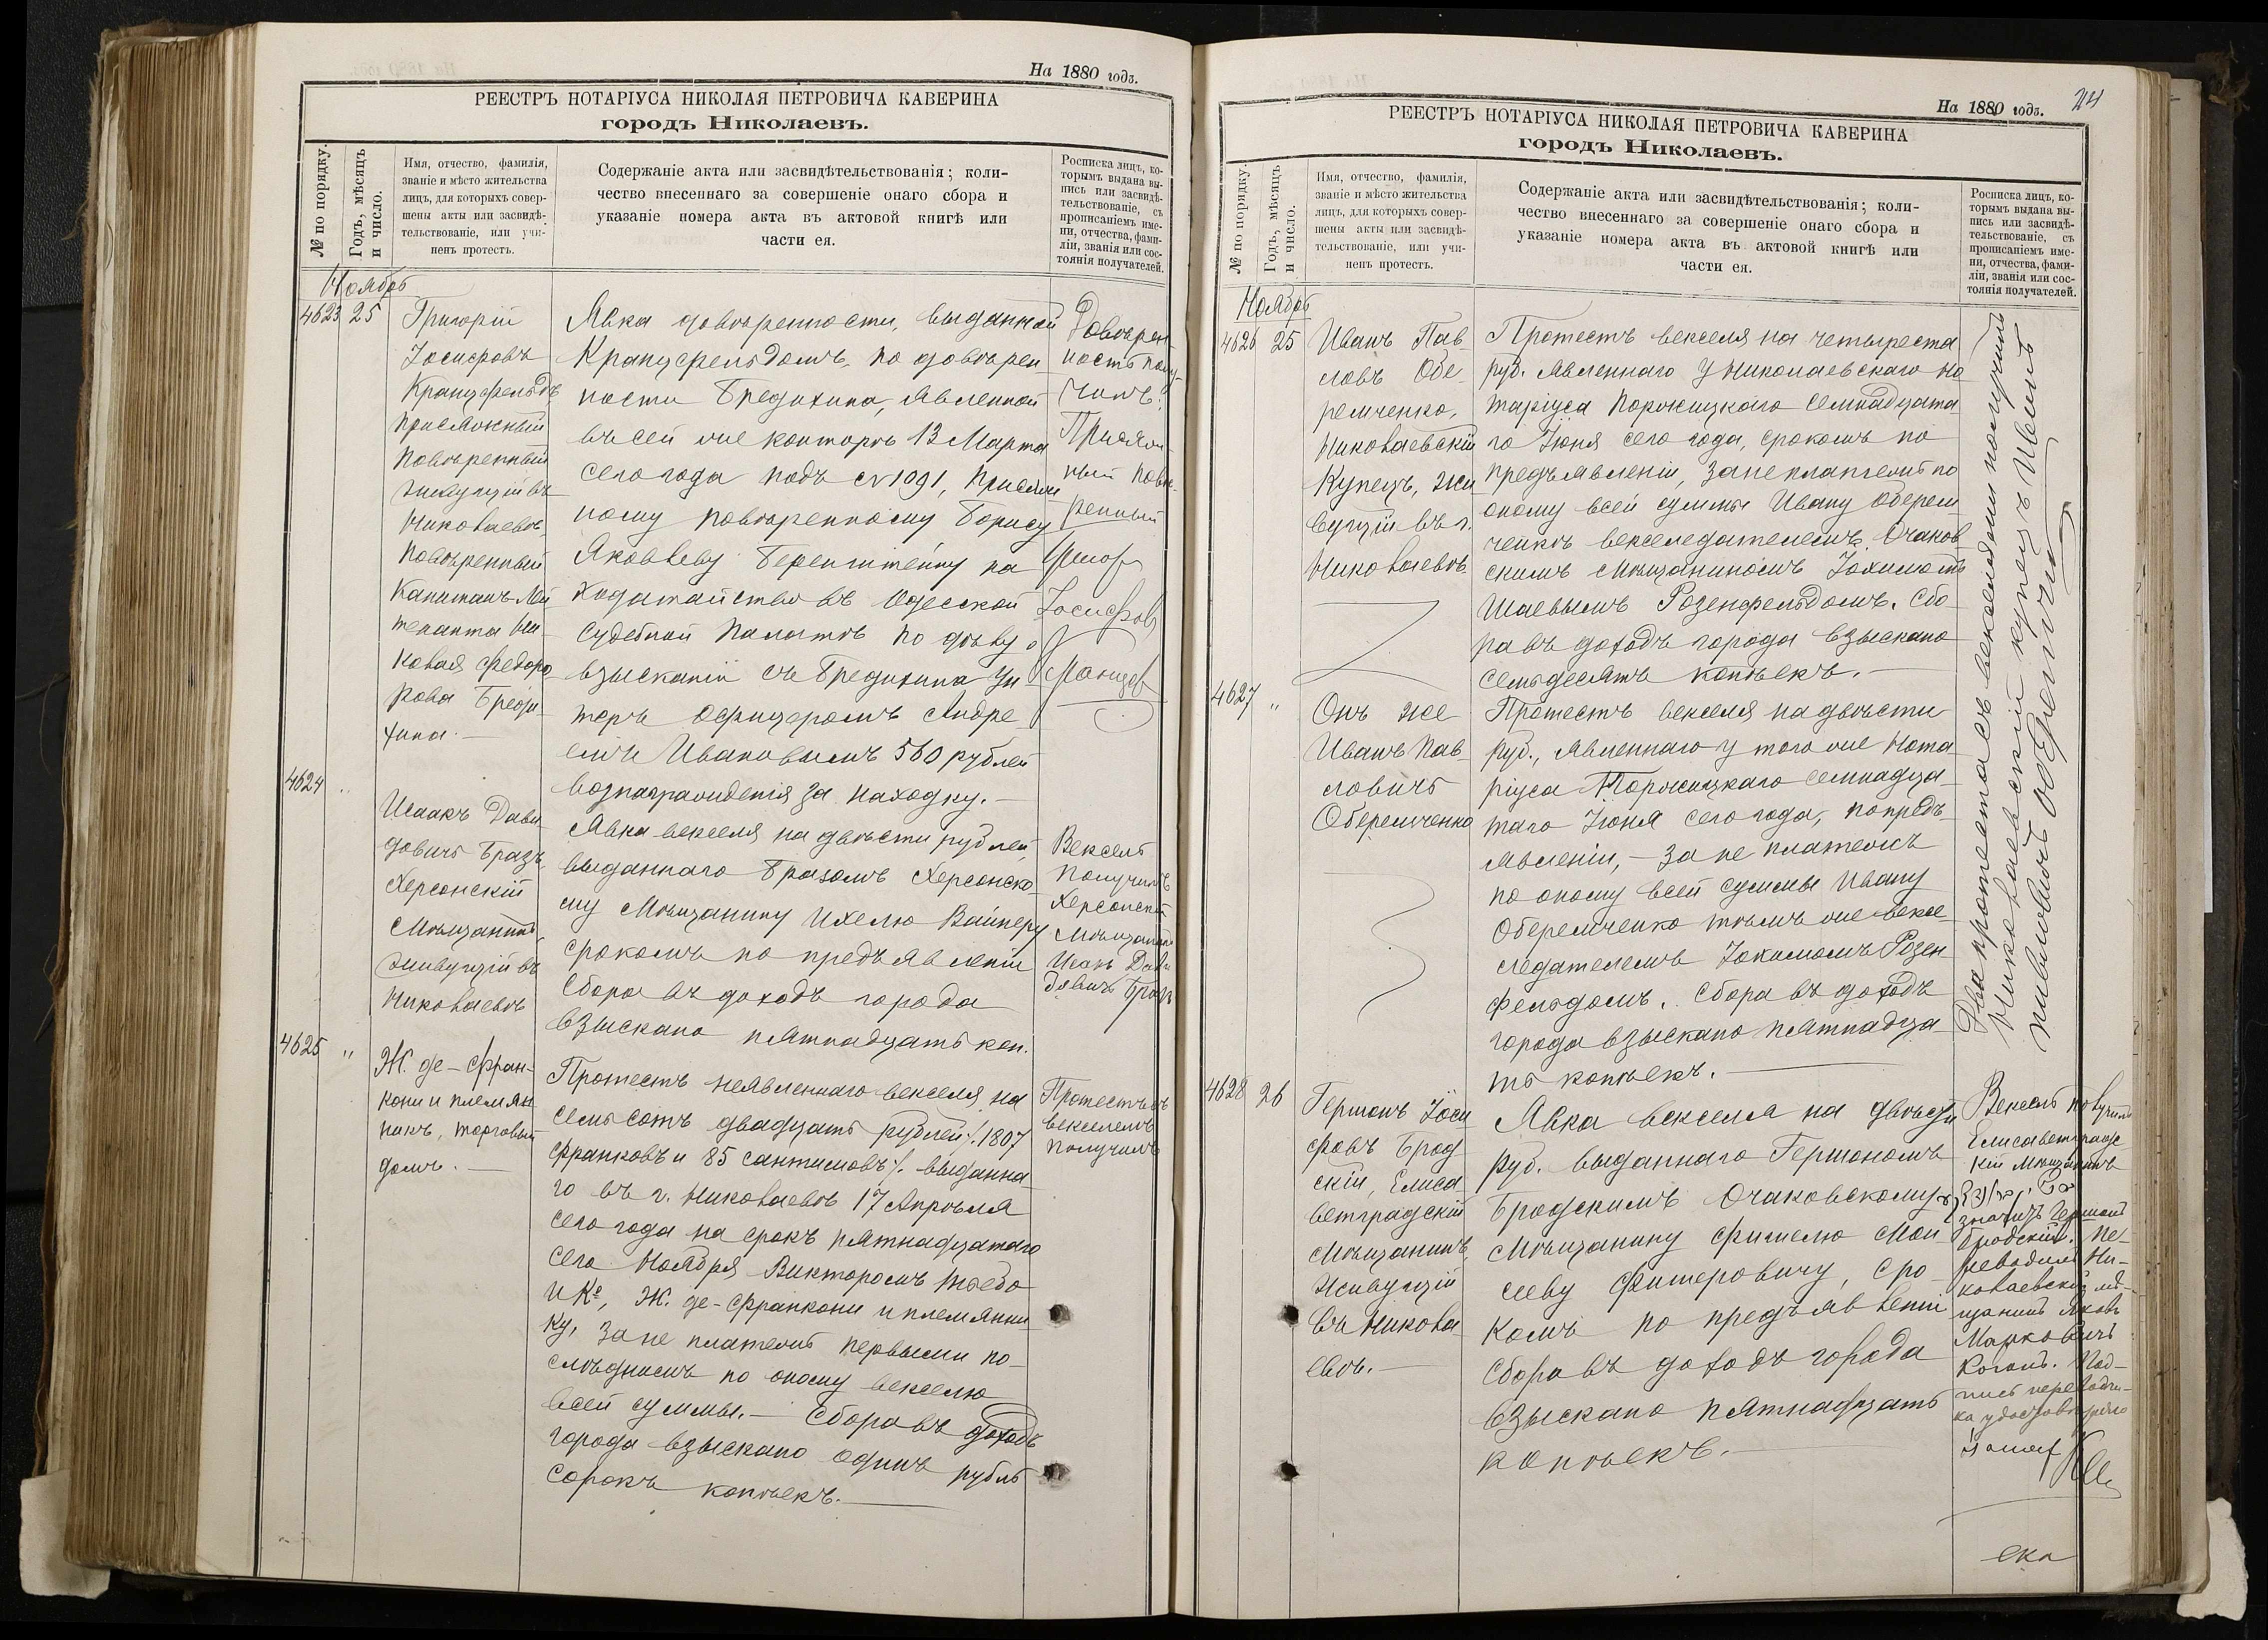 На 1880 годъ.
РЕЕСТРЪ НОТАРІУСА НИКОЛАЯ ПЕТРОВИЧА КАВЕРИНА
городъ Николаевъ.
№ по порядку.
Годъ, мѣсяцъ
и число.
Имя, отчество, фамилія,
званіе и мѣсто жительства
лицъ, для которыхъ совер-
шены акты или засвидѣ-
тельствованіе, или учи-
ненъ протестъ.
Содержаніе акта или засвидѣтельствованія; коли-
чество внесеннаго за совершеніе онаго сбора и
указаніе номера акта въ актовой книгѣ или
части ея.
Росписка лицъ, ко-
торымъ выдана вы-
пись или засвидѣ-
тельствованіе, съ
прописаніемъ име-
ни, отчества, фами-
ліи, званія или сос-
тоянія получателей.
Ноябрь
4623 25
Григорій
Іосифовъ
Кранцфельдъ
присяжный
повѣренный
живущій въ
Николаевѣ,
повѣренный
Капитанъ Лей
тенанта Ни-
колая Федоро
рова Бреди-
хина.—
Явка довѣренности, выданной
Кранцфельдомъ, по довѣрен
ности Бредихина, явленной
въ сей же конторѣ 13 Марта
сего года подъ №1091, присяж
ному повѣренному Борису
Яковлеву Беренштейну на
ходатайство въ Одесской
Судебной Палатѣ по дѣлу о
взысканіи съ Бредихина Ун
теръ Офицеромъ Андре
емъ Ивановымъ 560 рублей
вознагражденія за находку.—
Довѣрен
ность полу
чилъ:
Присяж
ный повѣ-
ренный
Іосифов
4624 "
Исаакъ Дави
довичъ Бразъ
Херсонскій
Мѣщанинъ,
живущій въ
Николаевѣ
Явка векселя на двѣсти рублей,
выданнаго Бразомъ Херсонско
му Мѣщанину Ихелю Вайнеру
срокомъ по предъявленіи
Сбора въ доходъ города
взыскано пятнадцать коп.
Вексель
получилъ
Херсонскій
Мѣщанинъ
Исакъ Дави
довичъ Бразъ
4625 "
Ж. де-Фран-
кони и племян
никъ, торговый
домъ.—
Протестъ неявленнаго векселя на
семьсотъ двадцать рублей /.1807
франковъ и 85 сантимовъ/. выданна-
го въ г. Николаевѣ 17 Апрѣля
сего года на срокъ пятнадцатаго
сего Ноября Викторомъ Тоебо
и Ко, Ж. де-Франкони и племянни
ку, за не платежъ первыми по-
слѣднимъ по оному векселю
всей суммы.— Сбора въ доходъ
города взыскано одинъ рубль
сорокъ копѣекъ.—
Протестъ съ
векселемъ
получилъ
На 1880 годъ.
24
РЕЕСТРЪ НОТАРІУСА НИКОЛАЯ ПЕТРОВИЧА КАВЕРИНА
городъ Николаевъ.
№ по порядку.
Годъ, мѣсяцъ
и число.
Имя, отчество, фамилія,
званіе и мѣсто жительства
лицъ, для которыхъ совер-
шены акты или засвидѣ-
тельствованіе, или учи-
ненъ протестъ.
Содержаніе акта или засвидѣтельствованія; коли-
чество внесеннаго за совершеніе онаго сбора и
указаніе номера акта въ актовой книгѣ или
части ея.
Росписка лицъ, ко-
торымъ выдана вы-
пись или засвидѣ-
тельствованіе, съ
прописаніемъ име-
ни, отчества, фами-
ліи, званія или сос-
тоянія получателей.
Ноябрь
4626 25
Иванъ Пав-
ловъ Обе-
ремченко,
Николаевскій
Купецъ, жи
вущій въ г.
Николаевѣ.
Протестъ векселя на четыреста
руб. явленнаго у Николаевскаго Но
таріуса Порожицкаго семнадцата
го Іюня сего года, срокомъ по
предъявленіи, за не платежъ по
оному всей суммы Ивану Оберем
ченкѣ векселедателемъ, Очаков
скимъ Мѣщаниномъ Іохимомъ
Шаевымъ Розенфельдомъ. Сбо-
ра въ доходъ города взыскано
семьдесятъ копѣекъ.—
Два протеста съ векселями получилъ
Николаевскій купецъ Иванъ
Павловичъ Оберемченко
4627 "
Онъ же
Иванъ Пав-
ловичъ
Оберемченко
Протестъ векселя на двѣсти
руб., явленнаго у того же Нота-
ріуса Порожицкаго семнадца-
таго Іюня сего года, по предъ-
явленіи,— за не платежъ
по оному всей суммы Ивану
Оберемченко тѣмъ же вексе-
ледателемъ Іохимомъ Розен-
фельдомъ. Сбора въ доходъ
города взыскано пятнадца-
ть копѣекъ.—
4628 26
Германъ Іоси
фовъ Брод
скій, Елиса
ветградскій
Мѣщанинъ,
живущій
въ Никола-
евѣ.—
Явка векселя на двѣсти
руб. выданнаго Германомъ
Бродскимъ Очаковскому
Мѣщанину Фишелю Мои-
сееву Фишеровичу, сро-
комъ по предъявленіи
Сбора въ доходъ города
взыскано пятнадцать
копѣекъ.—
Вексель получилъ
Елисаветградс
кій мѣщанинъ
значитъ Германъ
Бродскій. Пе-
реводилъ Ни-
колаевскій мѣ-
щанинъ Яковъ
Марковичъ
Коганъ. Под-
пись переводчи-
ка удостовѣряю